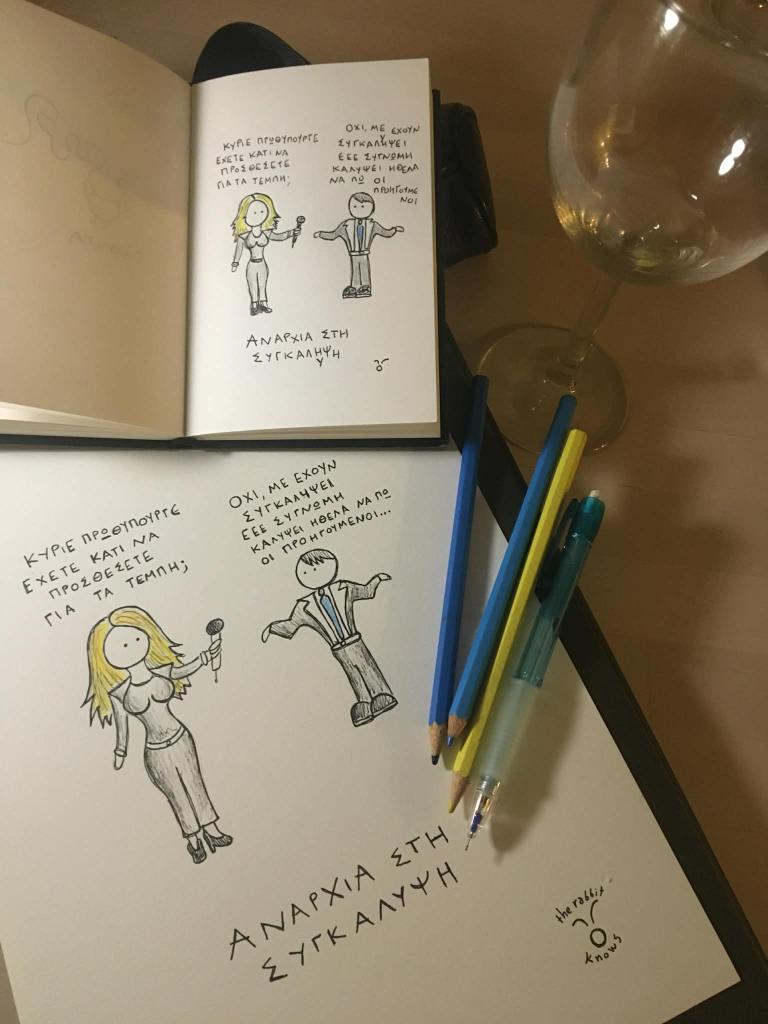 ΚΥΡΙΕ ΠΡΩΘΥΠΟΥΡΓΕ
ΕΧΕΤΕ ΚΑΤΙ ΝΑ
ΠΡΟΣΘΕΣΕΤΕ
ΓΙΑ ΤΑ ΤΕΜΠΗ;
ΟΧΙ, ΜΕ ΕΧΟΥΝ
ΣΥΓΚΑΛΥΨΕΙ
ΕΕΕ ΣΥΓΝΩΜΗ
ΚΑΛΥΨΕΙ ΗΘΕΛΑ
ΝΑ ΠΩ ΟΙ
ΠΡΟΗΓΟΥΜΕ
ΝΟΙ
ΑΝΑΡΧΙΑ ΣΤΗ
ΣΥΓΚΑΛΗΨΗ
Υ
ΚΥΡΙΕ ΠΡΩΘΥΠΟΥΡΓΕ
ΕΧΕΤΕ ΚΑΤΙ ΝΑ
ΠΡΟΣΘΕΣΕΤΕ
ΓΙΑ ΤΑ ΤΕΜΠΗ;
ΟΧΙ, ΜΕ ΕΧΟΥΝ
ΣΥΓΚΑΛΥΨΕΙ
ΕΕΕ ΣΥΓΝΩΜΗ
ΚΑΛΥΨΕΙ ΗΘΕΛΑ ΝΑ ΠΩ
ΟΙ ΠΡΟΗΓΟΥΜΕΝΟΙ...
ΑΝΑΡΧΙΑ ΣΤΗ
ΣΥΓΚΑΛΥΨΗ
the rabbit
knows